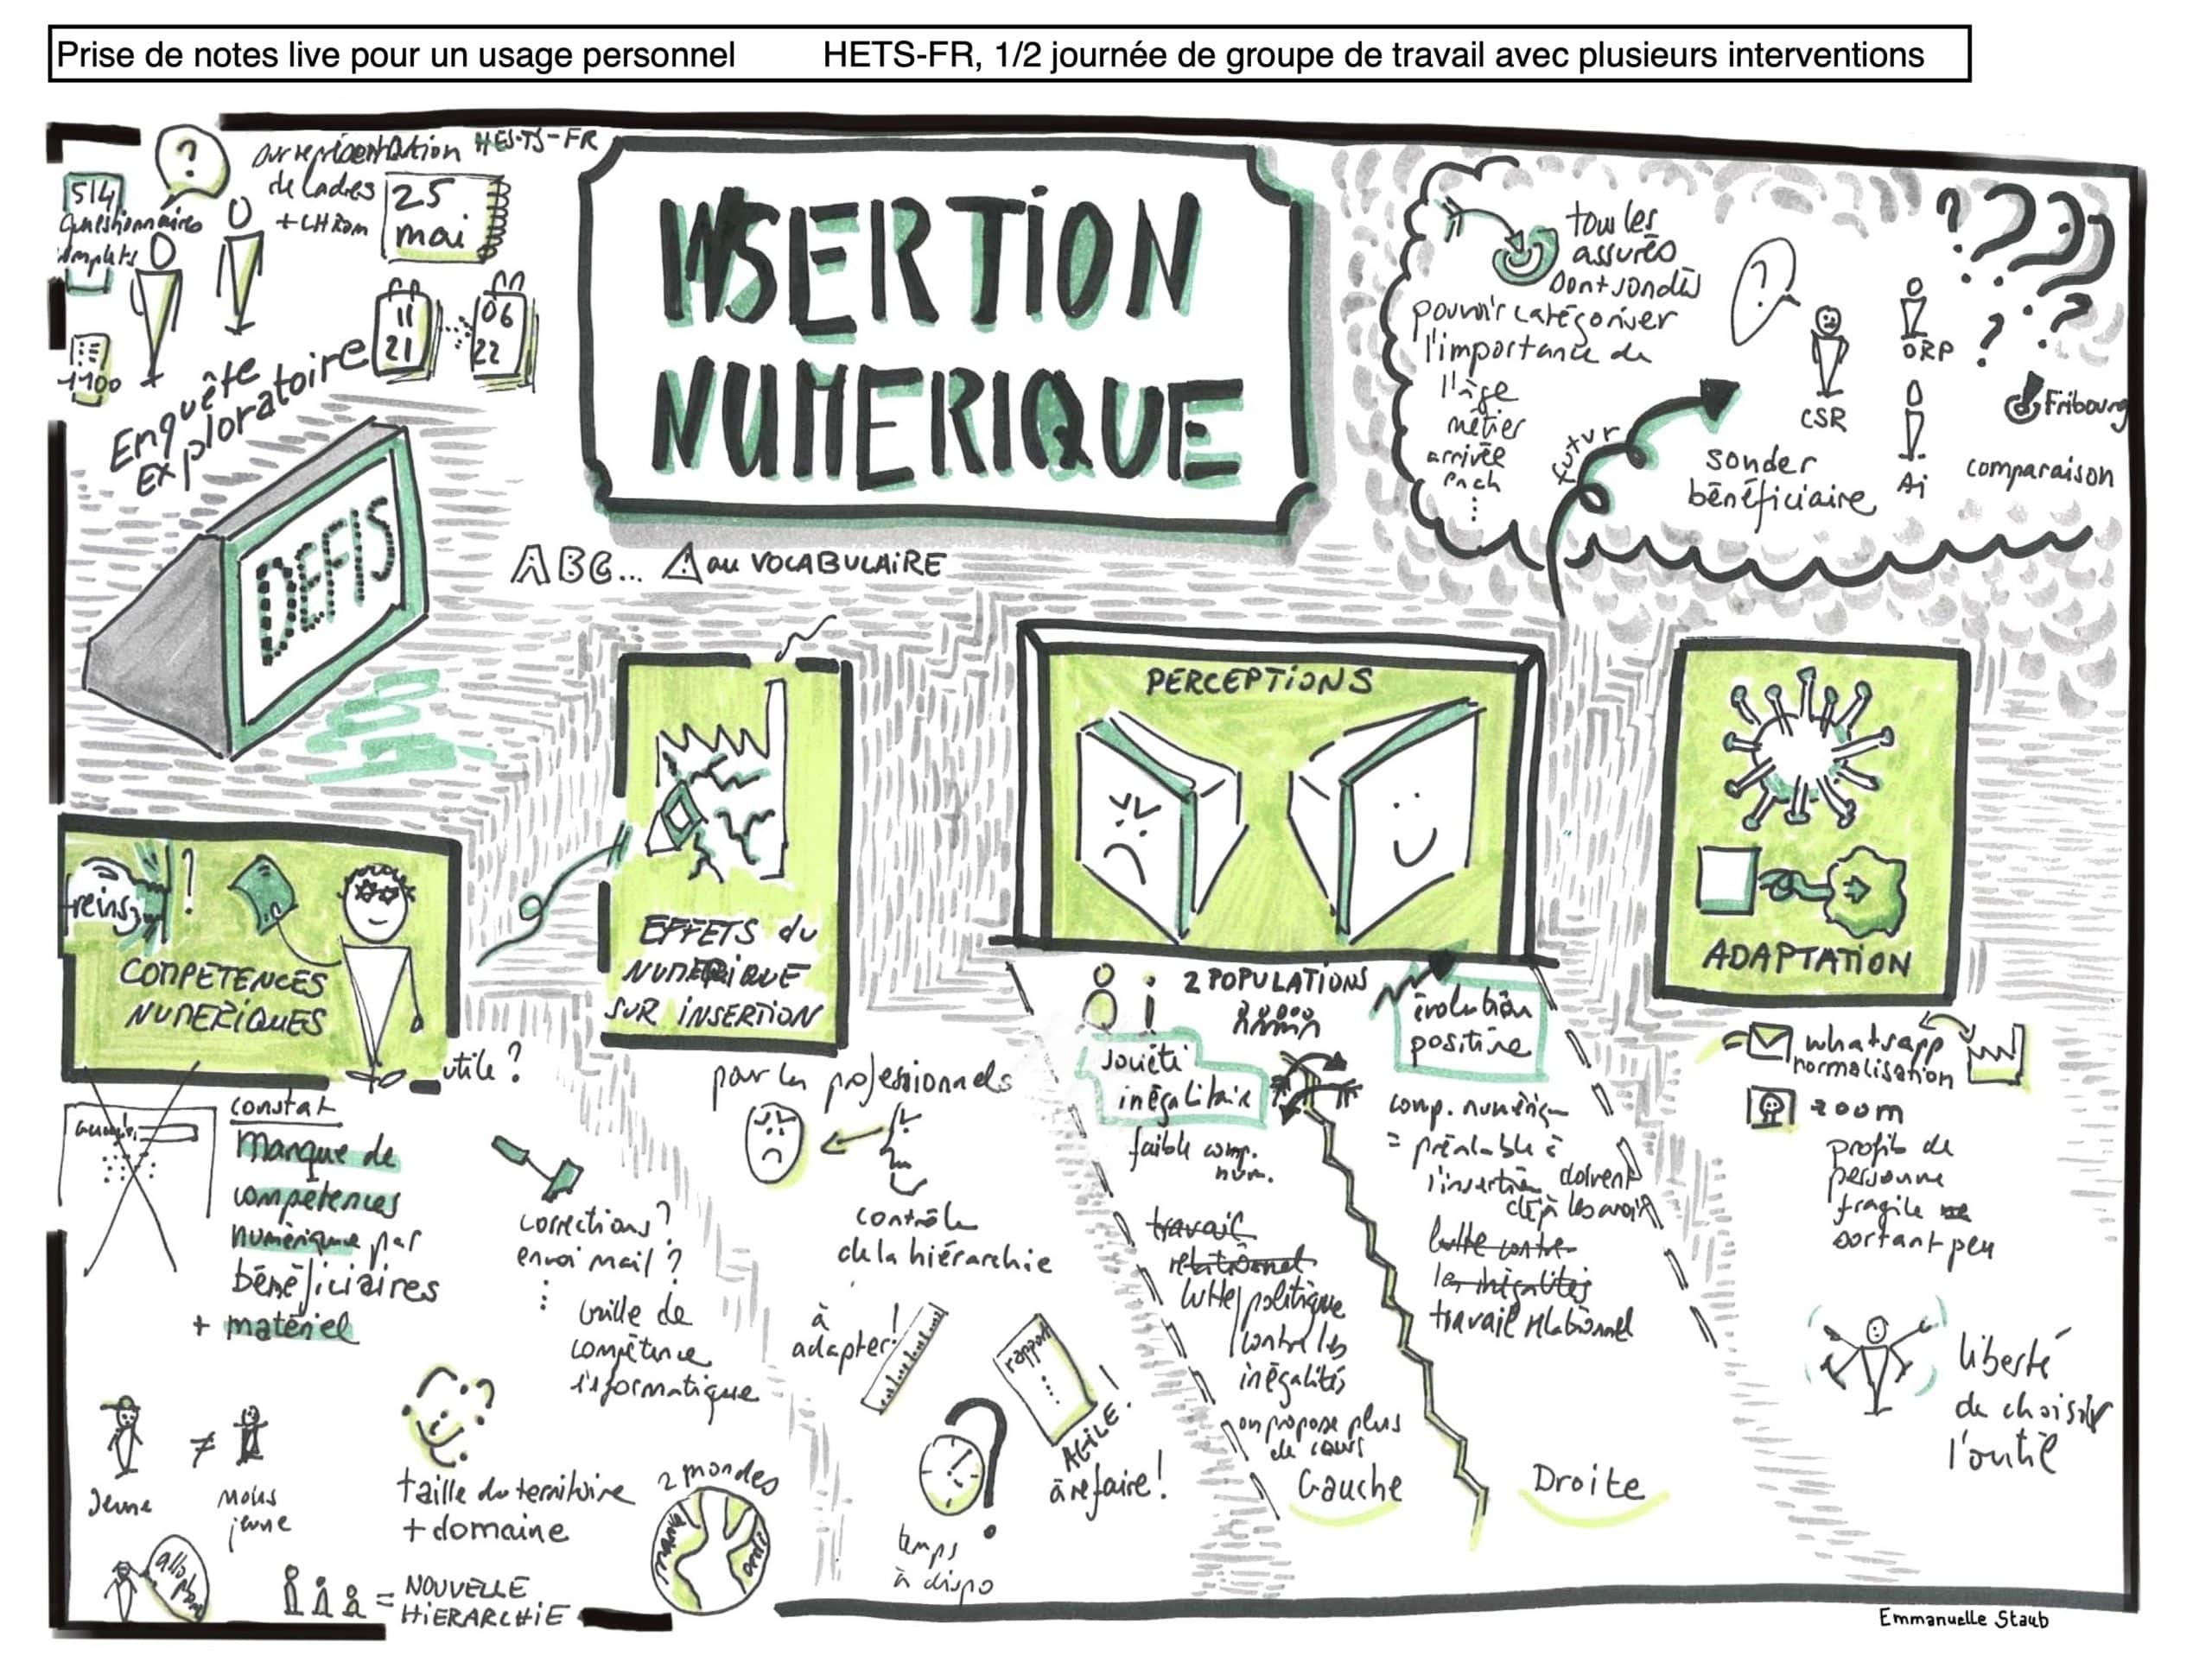 Prise de notes live pour un usage personnel
HETS-FR, 1/2 journée de groupe de travail avec plusieurs interventions
514
Questionnaires
complets
?
surreprésentation
de cadres
+ CH Rom
HES-TS-FR
25
mai
1100
Enquête
Exploratoire
11
21
06
22
INSERTION
NUMERIQUE
ABC... ! au VOCABULAIRE
DEFIS
tous les
assurés
sont sondés
pouvoir catégoriser
l'importance de
l'âge
métier
arrivée
futur
?
CSR
sonder
bénéficiaire
ORP
Ai
Fribourg
comparaison
COMPETENCES
NUMERIQUES
utile ?
constat
Manque de
compétences
numérique par
bénéficiaires
+ matériel
corrections ?
envoi mail ?
taille du territoire
+ domaine
compétence
informatique
Jeune
≠
Moins
jeune
= NOUVELLE
HIERARCHIE
2 mondes
EFFETS du
NUMERIQUE
SUR INSERTION
pour les professionnels
contrôle
de la hiérarchie
à
adapter !
rapport
AGILE !
à refaire !
temps
à dispo
PERCEPTIONS
2 POPULATIONS
évolution
positive
société
inégalitaire
faible comp.
num.
travail
relationnel
lutte politique
contre les
inégalités
on propose plus
de cours
Gauche
comp. numérique
= préalable à
l'insertion doivent
déjà les avoir
lutte contre
les inégalités
travail relationnel
Droite
ADAPTATION
whatsapp
normalisation
zoom
profils de
personne
fragile
sortant peu
liberté
de choisir
l'outil
Emmanuelle Staub